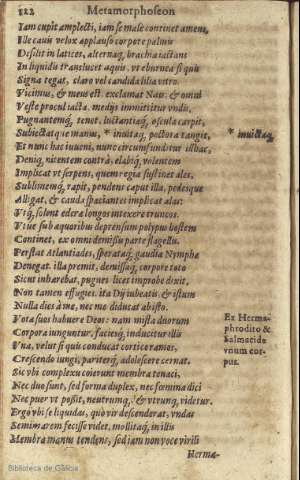 122 Metamorphoseon
Iam cupit amplecti, iam se male continet amens,
Ille cauis velox applauso corpore palmis
Desilit in latices, alternaq; brachia iactans
In liquidis translucet aquis, vt eburnea si quis
Signa tegat, claro vel candida lilia vitro.
Vicimus, & meus est exclamat Nais: & omni
Veste procul iacta, medijs immittitur vndis,
Pugnantemq; tenet, luctantiaq; oscula carpit,
Subiectatque manus, * inuitaq; pectora tangit, * inuictaq;
Et nunc hac iuueni, nunc circumfunditur illhac,
Deniq; nitentem contrà, elabiq; volentem
Implicat vt serpens, quem regia sustinet ales,
Sublimemq; rapit, pendens caput illa, pedesque
Alligat, & cauda spaciantes implicat alas:
Vtq; solent edera longos intexere truncos.
Vtue sub aquoribus deprensum polypus hostem
Continet, ex omni demissis parte flagellis.
Perstat Atlantiades, sperataq; gaudia Nympha
Denegat. illa premit, demissaq; corpore toto
Sicut inhærebat, pugnes licet improbe dixit,
Non tamen effugies. ita Dij iubeatis, & istum
Nulla dies à me, nec me diducat ab isto.
Vota suos habuere Deos: nam mista duorum
Corpora iunguntur, faciesq; inducitur illis
Vna, velut si quis conducat cortice ramos,
Crescendo iungi, pariterq; adolescere cernat.
Ex Herma-
phrodito &
Salmacide
vnum cor-
pus.
Sic vbi complexu coierunt membra tenaci,
Nec duo sunt, sed forma duplex, nec fœmina dici
Nec puer vt poßit, neutrumq; & vtrunq; videtur.
Ergo vbi se liquidas, quò vir descenderat, vndas
Semimarem fecisse videt, mollitaq; in illis
Membra manus tendens, sed iam non voce virili
Herma-
Biblioteca de Galicia